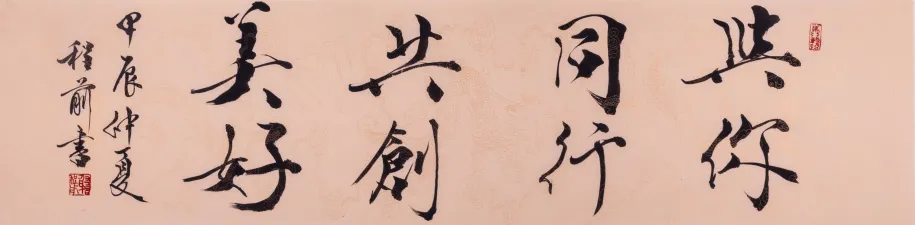 與你
同行
共創
美好
甲辰仲夏
程前書